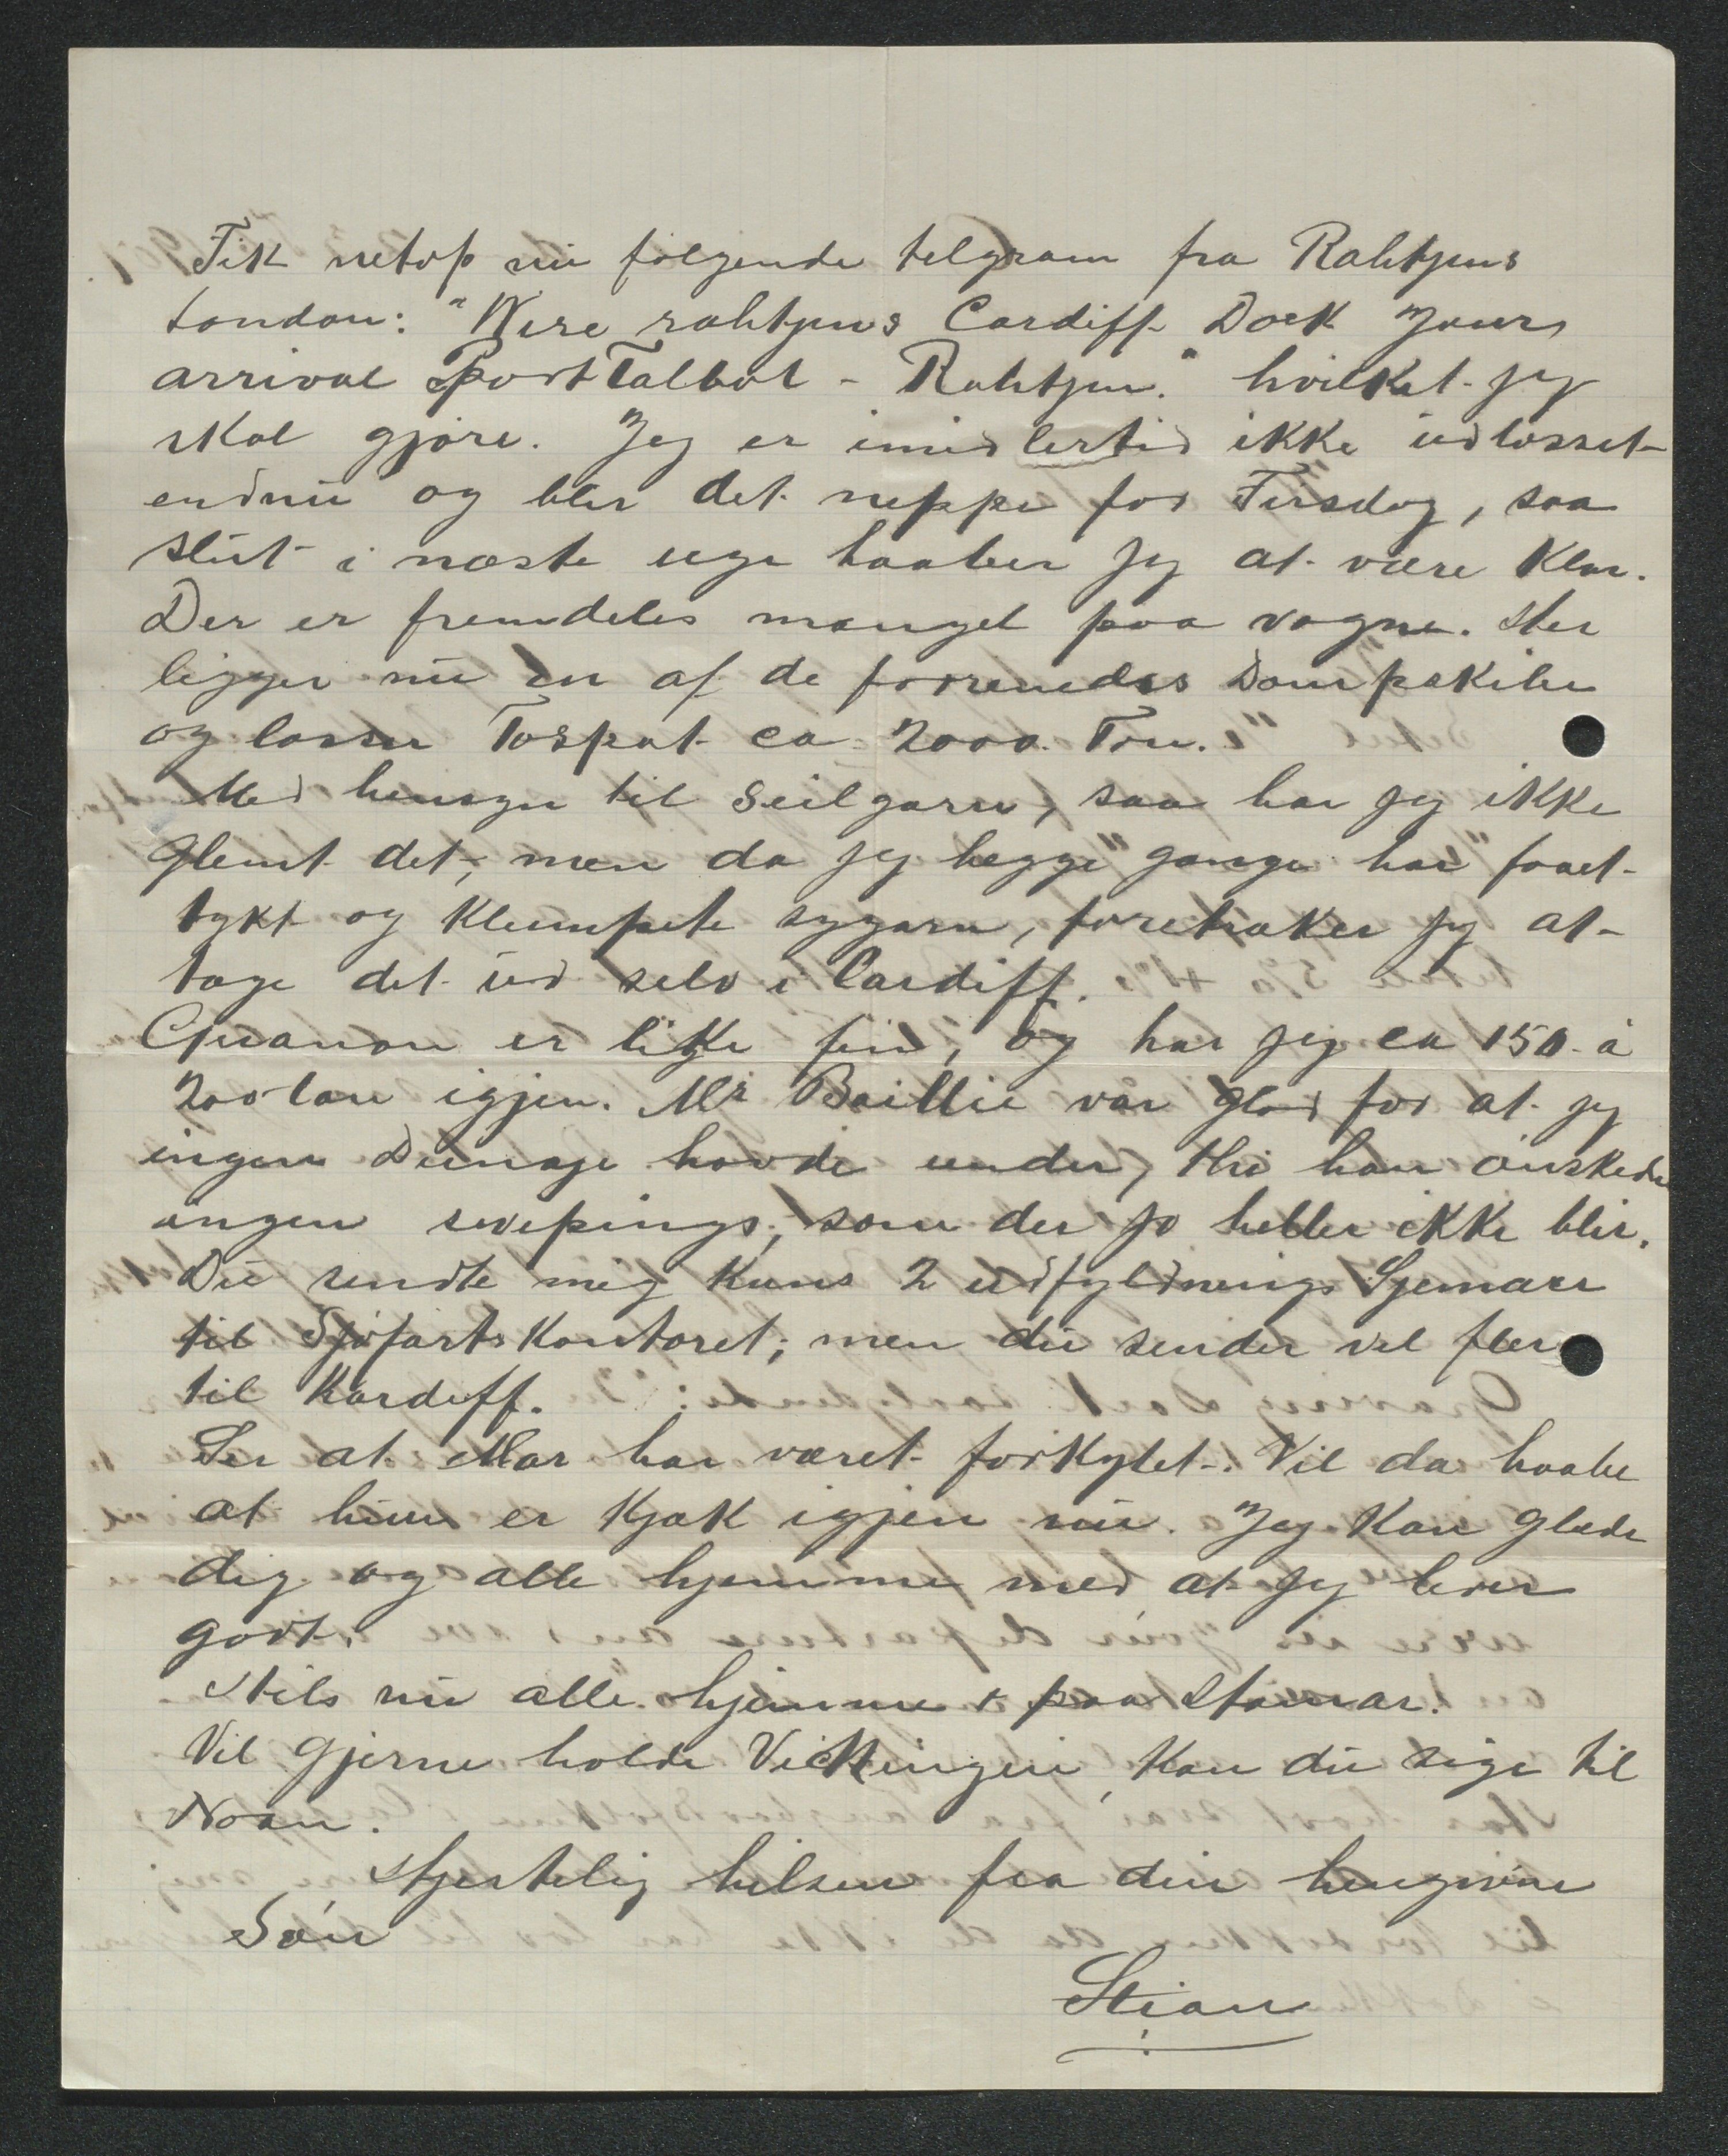 Fik netop nu følgende telgram fra Rahtjens
London: "Wire rahtjens Cardiff Dock Yours
arrival Port Talbot - Rahtjen." hvilket jeg
skal gjøre. Jeg er imidlertid ikke udlosset
endnu og blir det neppe før Tirsdag, saa
slut i næste uge haaber jeg at være klar.
Der er fremdeles mangel paa vogne. Her
ligger nu en af de forenedes Dampskibe
og losser Fospat ca 2000. Ton.
Med hensyn til Seilgarn, saa har jeg ikke
Glemt det; men da jeg begge gange har faaet
tykt og klumpete sygarn, foretrækker jeg at
tage det ud selv i Cardiff.
Guanoen er like fin, og har jeg ca 150 à
200 ton igjen. Mr Baillie var glad for at jeg
ingen Dunage havde under, thi han ønskede
ingen svepings, som der jo heller ikke blir.
Du sendte mig kuns 2 udfyldnings Sjemaer
til Sjøfartskontoret; men du sender vel fler
til Kardiff.
Ser at Mor har været forkjølet. Vil da haabe
at hun er kjæk igjen nu. Jeg kan glæde
dig og alle hjemme med at jeg lever
godt.
Hils nu alle hjemme & paa Hamar.
Vil gjerne holde Vickingen, kan du sige til
Hjertelig hilsen fra din hengivne
Søn
Stian